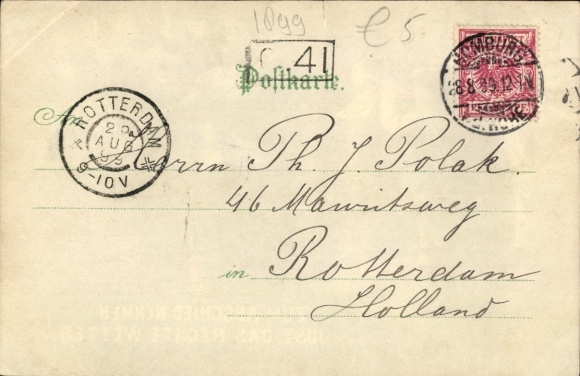 1899
€5.
41
HOMBURG
28.8.99.12-1N
v.d. HÖHE
Postkarte.
An
ROTTERDAM
29
AUG
99
9-10V
Herrn Th. J. Polak.
46 Mauritsweg
in Rotterdam
Holland